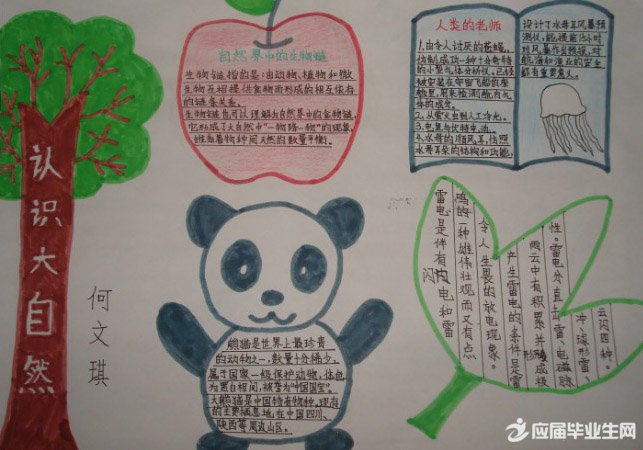 认识大自然
何文琪
自然界中的生物链
生物链指的是:由动物,植物和微
生物互相提供食物而形成的相互依存
的链条关系。
生物链也可以理解为自然界中的食物链,
它形成了大自然中“一物降一物”的现象,
维系着物种间天然的数量平衡。
人类的老师
1.由令人讨厌的苍蝇,
仿制成功一种十分奇特
的小型气体分析仪。已经
被安装在宇宙飞船的座
舱里,用来检测舱内气
体的成分。
2.从萤火虫到人工冷光。
3.电鱼与伏特电池。
4.水母的顺风耳,仿照
水母耳朵的结构和功能,
设计了水母耳风暴预
测仪,能提前15小时
对风暴作出预报,对
航海和渔业的安全
都有重要意义。
熊猫是世界上最珍贵
的动物之一,数量十分稀少,
属于国家一级保护动物,体色
为黑白相间,被誉为“中国国宝”。
大熊猫是中国特有物种,现存
的主要栖息地在中国四川、
陕西等周边山区。
雷电是伴有闪电和雷
鸣的一种雄伟壮观而又有点
令人生畏的放电现象。
产生雷电的条件是雷
雨云中有积累并形成极
性。雷电分直击雷、电磁脉
冲、球形雷、
云闪四种。
应届毕业生网